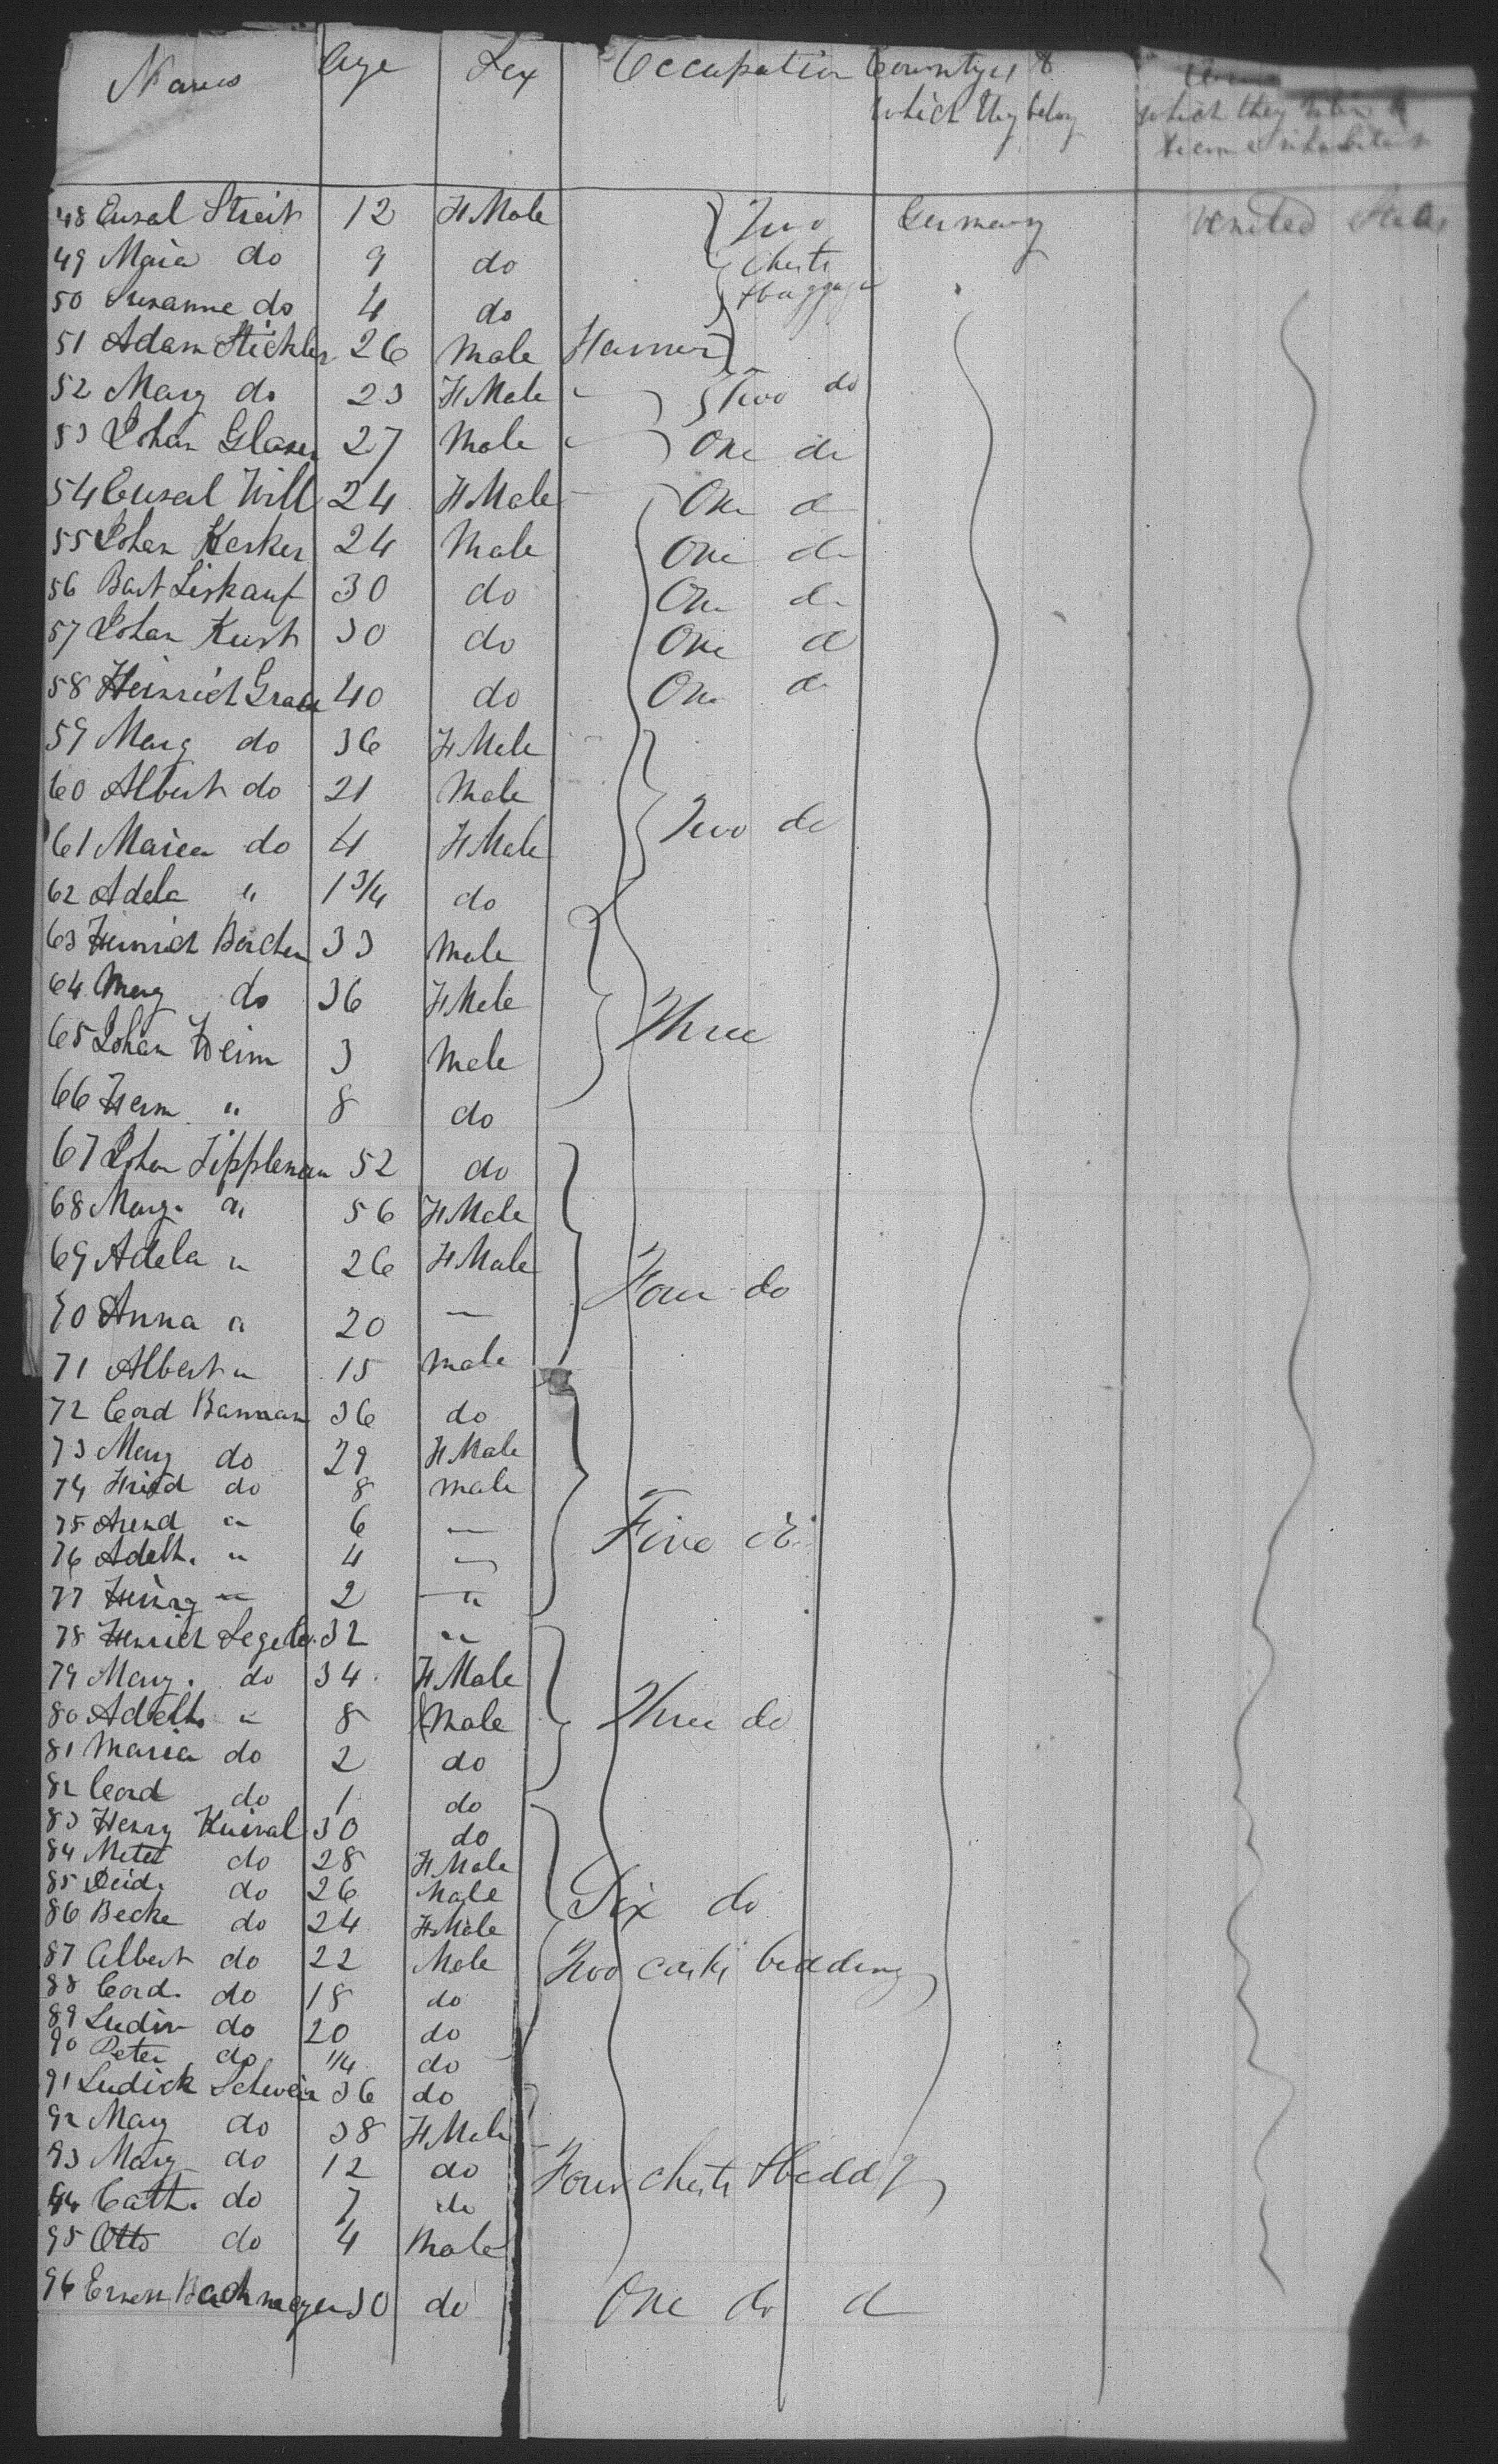 Names Age Sex Occupation Country to
which they belong which they intend to
become inhabitants
48 Eusal Streit 12 FMale Two Germany United States
49 Maria do 9 do Chests
50 Susanne do 4 do & baggage
51 Adam Stickler 26 Male Farmer
52 Marg do 23 FMale " Two do
53 Johan Glaser 27 Male " One do
54 Eusal Will 24 FMale One do
55 Johan Kerker 24 Male One do
56 Bart Liskauf 30 do One do
57 Johan Kust 30 do One do
58 Heinrich Grabe 40 do One do
59 Marg do 36 FMale
60 Albert do 21 Male
61 Maria do 4 FMale Two do
62 Adela " 1 3/4 do
63 Heinrich 33 Male
64 Marg do 36 FMale
65 Johan Heim 3 Male Three
66 Herm " 8 do
67 Johan 52 do
68 Marg. " 56 FMale
69 Adela " 26 FMale Four do
70 Anna " 20 —
71 Albert " 15 Male
72 Cord Banman 36 do
73 Marg do 29 FMale
74 do 8 Male
75 Arend " 6 — Five do
76 Adelh. " 4 "
77 Henry " 2 "
78 Henrich Segeler 32 "
79 Marg. do 34 FMale
80 Adelh " 8 Male Three do
81 Maria do 2 do
82 Cord do 1 do
83 Henry 30 do
84 Meta do 28 FMale
85 Deid. do 26 Male Six do
86 Becke do 24 FMale
87 Albert do 22 Male Two casks bedding
88 Cord. do 18 do
89 Luder do 20 do
90 Peter do 1/4 do
91 Ludick 36 do
92 Marg do 38 FMale
93 Marg do 12 do Four chests & bedd g
94 Cath. do 7 do
95 Otto do 4 Male
96 Bachmeyer 30 do One do d